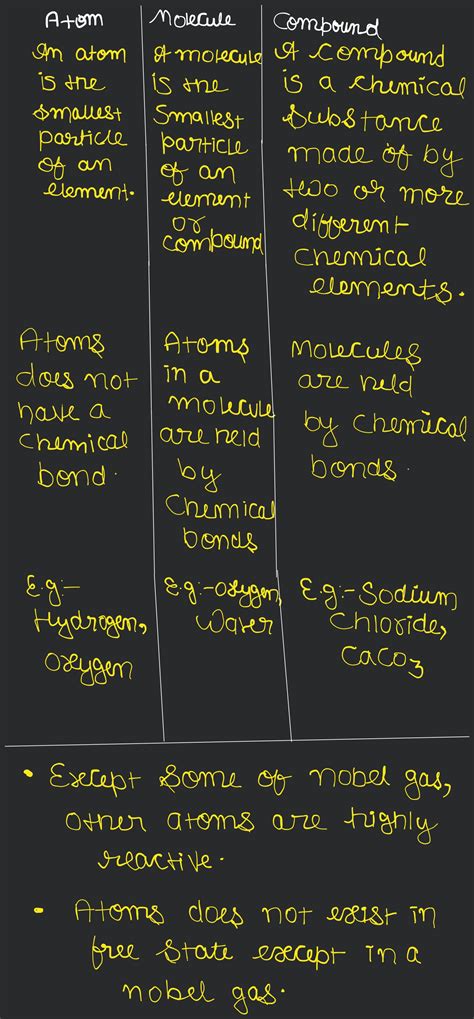 Atom
An atom
is the
smallest
particle
of an
element.
Atoms
does not
have a
chemical
bond.
E.g:-
Hydrogen,
Oxygen
Molecule
A molecule
is the
Smallest
particle
of an
element
or
compound
Atoms
in a
molecule
are held
by
Chemical
bonds
E.g:-Oxygen,
Water
Compound
A compound
is a chemical
Substance
made of by
two or more
different
chemical
elements.
Molecules
are held
by chemical
bonds.
E.g:-Sodium
Chloride,
CaCO3
• Except Some of nobel gas,
other atoms are highly
reactive.
• Atoms does not exist in
free state except in a
nobel gas.